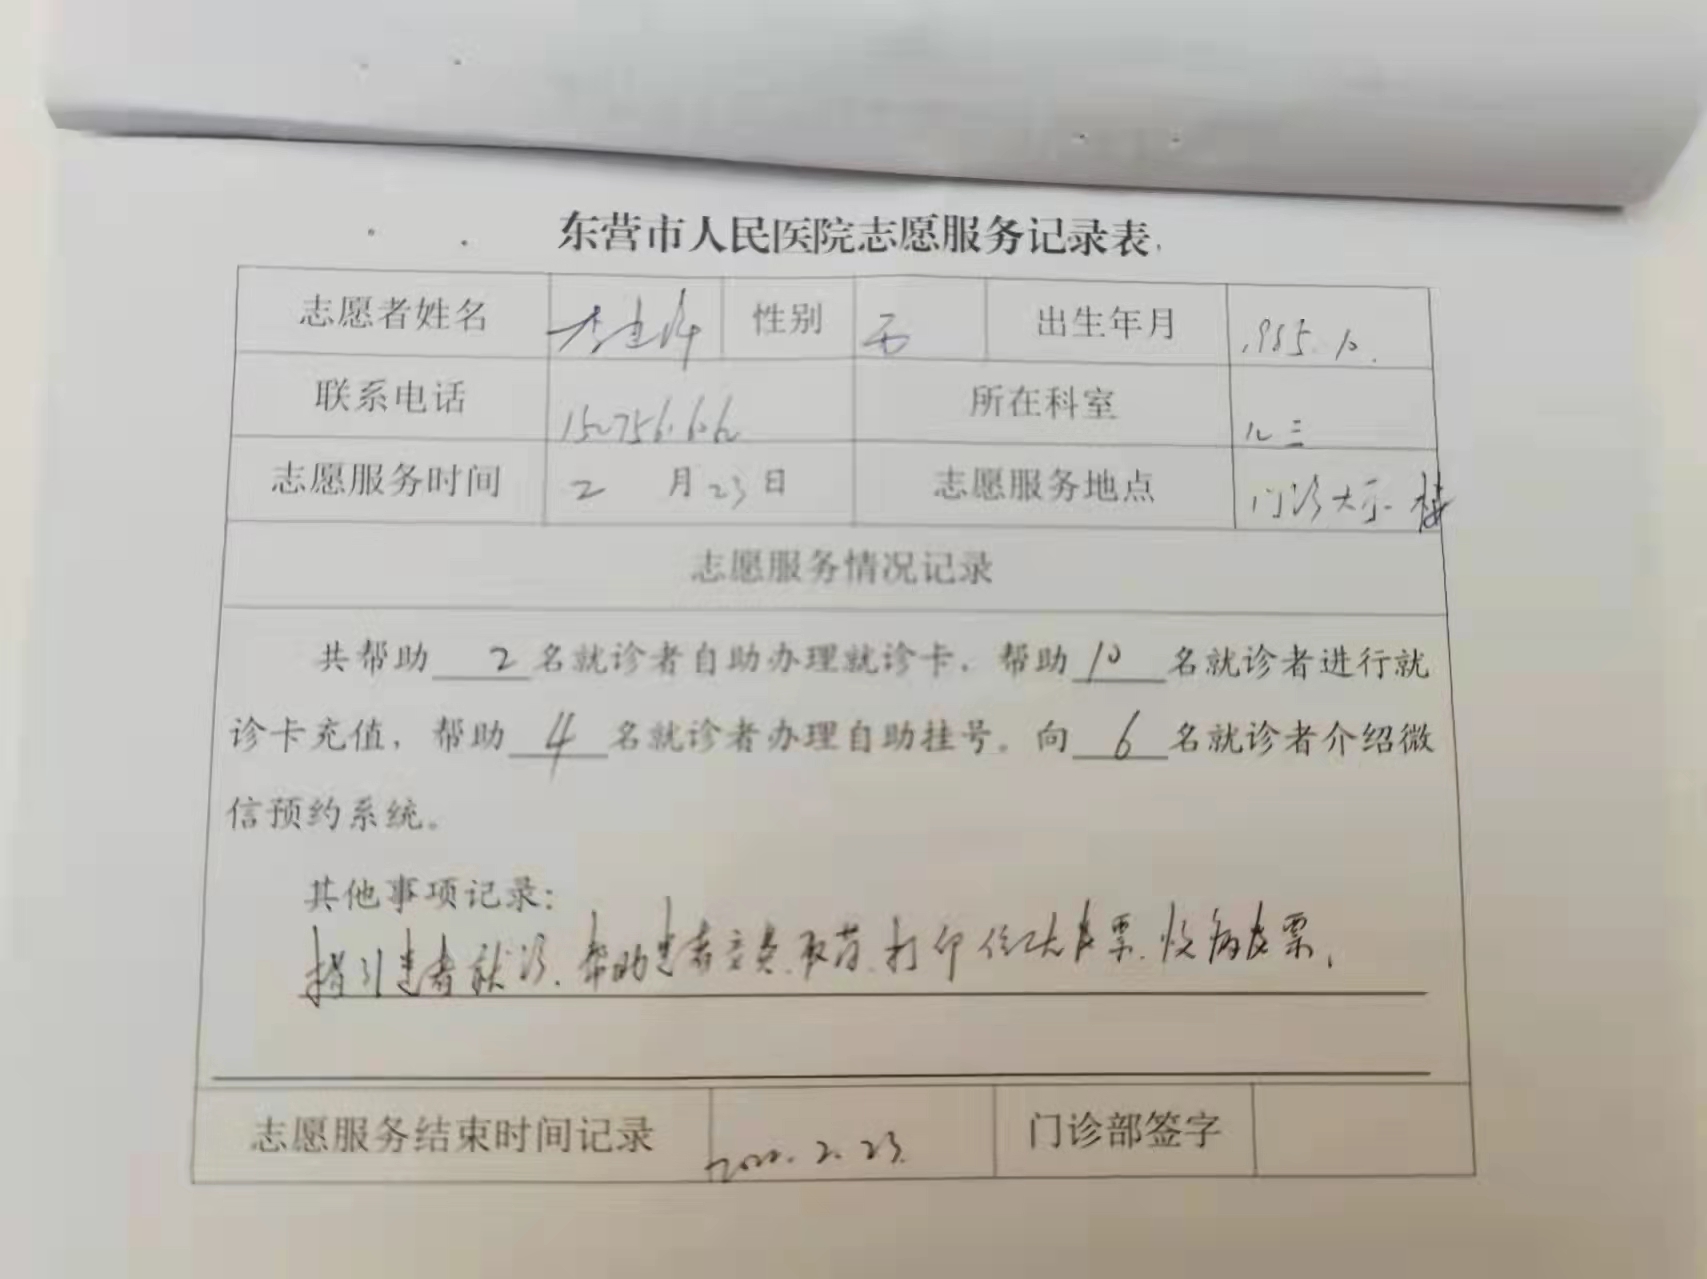 东营市人民医院志愿服务记录表
志愿者姓名 性别 出生年月 1985.10.
联系电话 所在科室
志愿服务时间 2 月 23 日 志愿服务地点 门诊大厅 楼
志愿服务情况记录
共帮助 2 名就诊者自助办理就诊卡、帮助 10 名就诊者进行就
诊卡充值，帮助 4 名就诊者办理自助挂号。向 6 名就诊者介绍微
信预约系统。
其他事项记录：
指引患者就诊、帮助患者交费、取药、打印 发票、发票、
志愿服务结束时间记录 2022.2.23. 门诊部签字